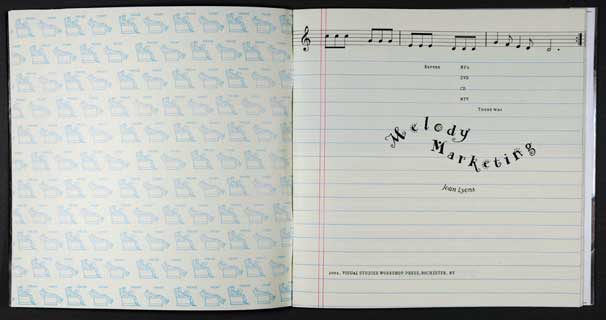 Before MP3
DVD
CD
MTV
There was
Melody
Marketing
Joan Lyons
VISUAL STUDIES WORKSHOP PRESS, ROCHESTER, NY